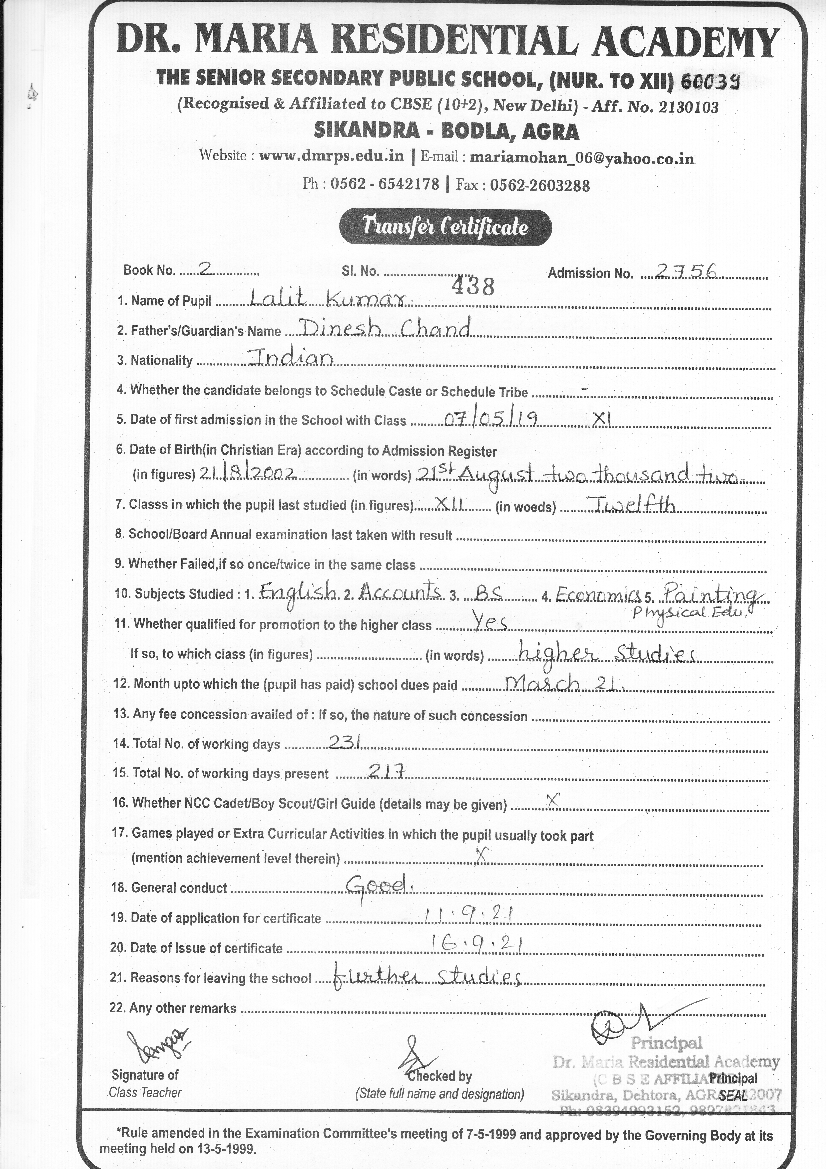 DR. MARIA RESIDENTIAL ACADEMY
THE SENIOR SECONDARY PUBLIC SCHOOL, (NUR. TO XII) 60039
(Recognised & Affiliated to CBSE (10+2), New Delhi) - Aff. No. 2130103
SIKANDRA - BODLA, AGRA
Website : www.dmrps.edu.in | E-mail : mariamohan_06@yahoo.co.in
Ph : 0562 - 6542178 | Fax : 0562-2603288
Transfer Certificate
Book No. 2 Sl. No. 438 Admission No. 2756
1. Name of Pupil Lalit Kumar
2. Father's/Guardian's Name Dinesh Chand
3. Nationality Indian
4. Whether the candidate belongs to Schedule Caste or Schedule Tribe -
5. Date of first admission in the School with Class 07/05/19 XI
6. Date of Birth(in Christian Era) according to Admission Register
(in figures) 21/8/2002 (in words) 21st August two thousand two
7. Classs in which the pupil last studied (in figures) XII (in woeds) Twelfth
8. School/Board Annual examination last taken with result
9. Whether Failed,if so once/twice in the same class
10. Subjects Studied : 1. English 2. Accounts 3. BS 4. Economics 5. Painting
Physical Edu.
11. Whether qualified for promotion to the higher class Yes
If so, to which class (in figures) (in words) higher studies
12. Month upto which the (pupil has paid) school dues paid March 21.
13. Any fee concession availed of : If so, the nature of such concession
14. Total No. of working days 231
15. Total No. of working days present 217
16. Whether NCC Cadet/Boy Scout/Girl Guide (details may be given) X
17. Games played or Extra Curricular Activities in which the pupil usually took part
(mention achievement level therein) X
18. General conduct Good.
19. Date of application for certificate 11.9.21
20. Date of Issue of certificate 16.9.21
21. Reasons for leaving the school further studies
22. Any other remarks
Principal
Dr. Maria Residential Academy
Signature of Checked by (C B S E Principal
Class Teacher (State full name and designation) Sikandra, Dehtora, SEAL
*Rule amended in the Examination Committee's meeting of 7-5-1999 and approved by the Governing Body at its
meeting held on 13-5-1999.